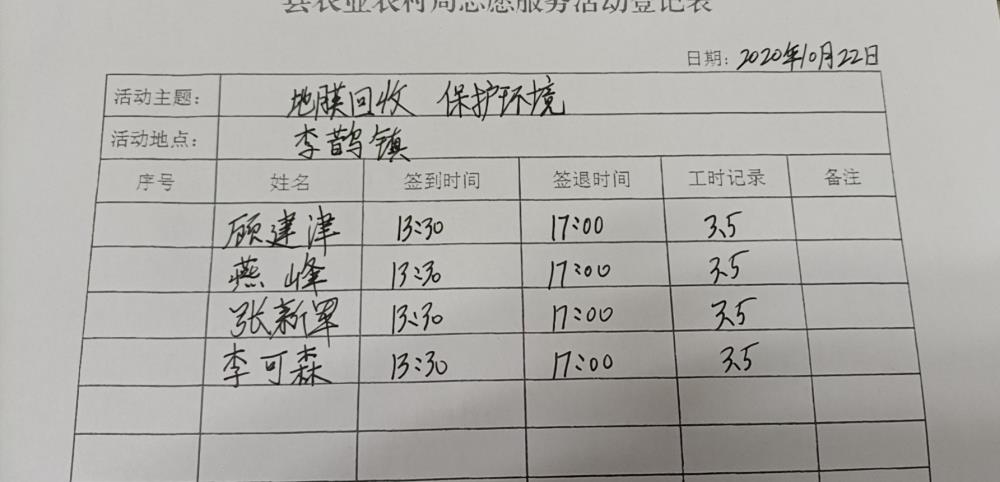 县农业农村局志愿服务活动登记表
日期: 2020年10月22日
活动主题: 地膜回收 保护环境
活动地点: 李鹊镇
序号 姓名 签到时间 签退时间 工时记录 备注
顾建津 13:30 17:00 3.5
燕峰 13:30 17:00 3.5
张新军 13:30 17:00 3.5
李可森 13:30 17:00 3.5